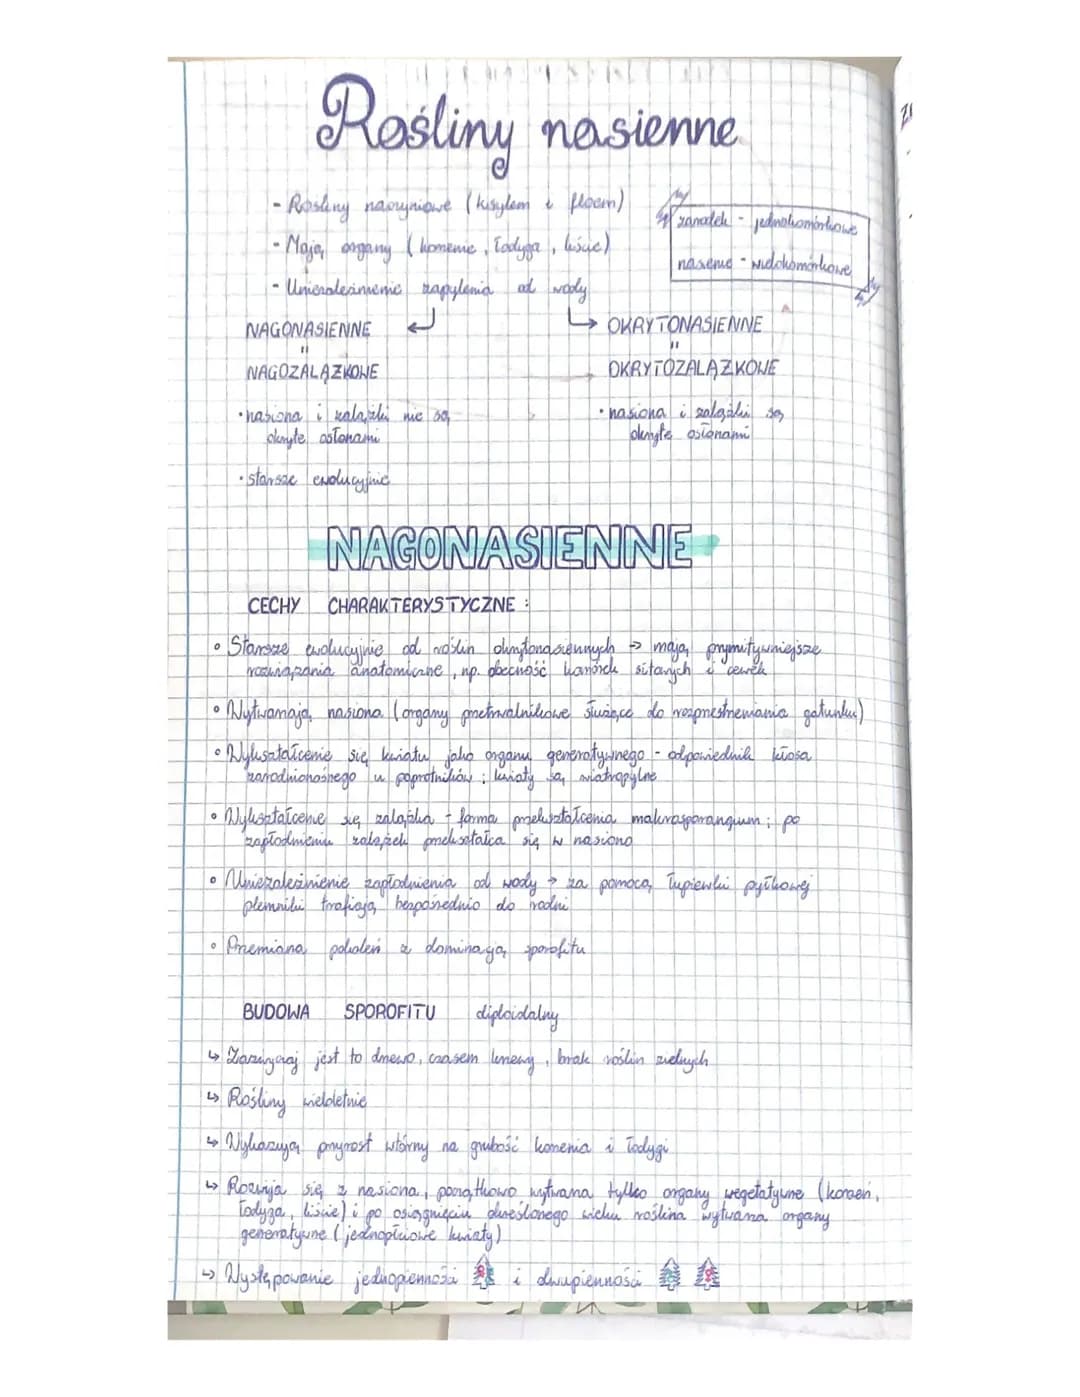 Rośliny nasienne
- Rośliny naczyniowe (ksylem i floem)
- Mają organy (korzenie, łodyga, liście)
- Uniezależnienie zapylenia od wody
zarodek - jednokomórkowe
nasienie - wielokomórkowe
NAGONASIENNE
"
NAGOZALĄŻKOWE
• nasiona i zalążki nie są
okryte osłonami
• starsze ewolucyjnie
OKRYTONASIENNE
"
OKRYTOZALĄŻKOWE
• nasiona i zalążki są
okryte osłonami
NAGONASIENNE
CECHY CHARAKTERYSTYCZNE :
• Starsze ewolucyjnie od roślin okrytonasiennych → mają prymitywniejsze
rozwiązania anatomiczne, np. obecność komórek sitowych i cewek
• Wytwarzają nasiona (organy przetrwalnikowe służące do rozprzestrzeniania gatunku)
• Wykształcenie się kwiatu jako organu generatywnego - odpowiednik kłosa
zarodnionośnego u paprotników ; kwiaty są wiatropylne
• Wykształcenie się zalążka - forma przekształcenia makrosporangium ; po
zapłodnieniu zalążek przekształca się w nasiono
• Uniezależnienie zapłodnienia od wody → za pomocą łagiewki pyłkowej
plemniki trafiają bezpośrednio do rodni
• Przemiana pokoleń z dominacją sporofitu
BUDOWA SPOROFITU diploidalny
↳ Zazwyczaj jest to drzewo, czasem krzewy, brak roślin zielnych
↳ Rośliny wieloletnie
↳ Wykazują przyrost wtórny na grubość korzenia i łodygi
↳ Rozwija się z nasiona, początkowo wytwarza tylko organy wegetatywne (korzeń,
łodyga, liście) i po osiągnięciu określonego wieku roślina wytwarza organy
generatywne (jednopłciowe kwiaty)
↳ Występowanie jednopienności i dwupienności